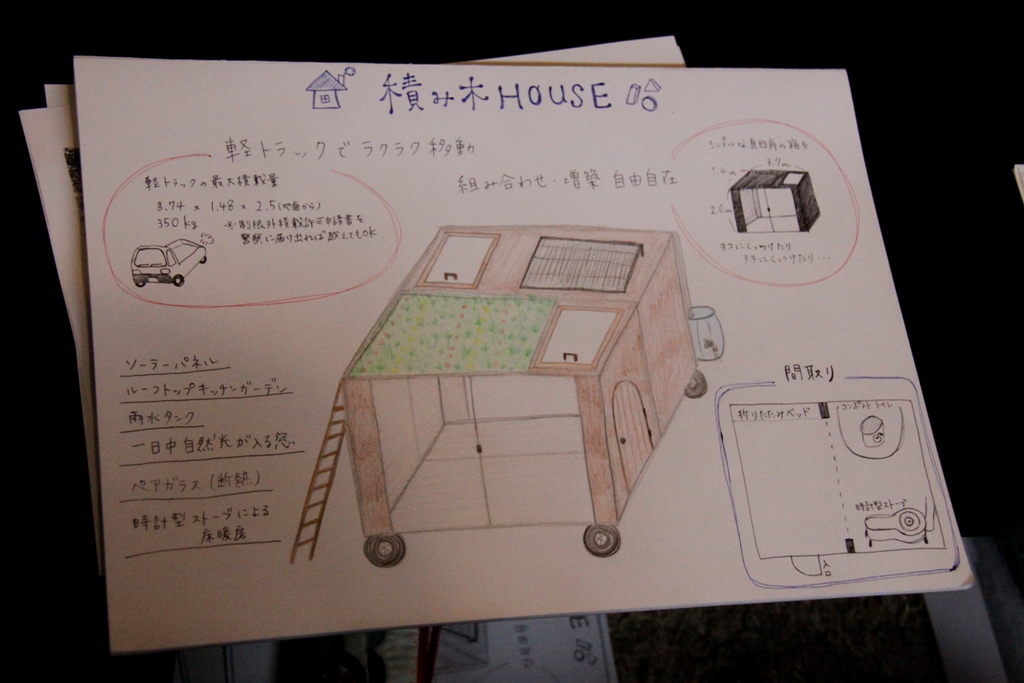 積み木HOUSE
軽トラックでラクラク移動
組み合わせ・増築 自由自在
軽トラックの最大積載量
3.74 × 1.48 × 2.5(地面から)
350kg ※制限外積載許可申請書を
警察に届け出れば越えてもOK
シンプルな真四角の箱を
2.0m
ヨコにくっつけたり
タテにくっつけたり…
ソーラーパネル
ルーフトップキッチンガーデン
雨水タンク
一日中自然光が入る窓
ペアガラス(断熱)
時計型ストーブによる
床暖房
間取り
折りたたみベッド
コンポストトイレ
時計型ストーブ
入口